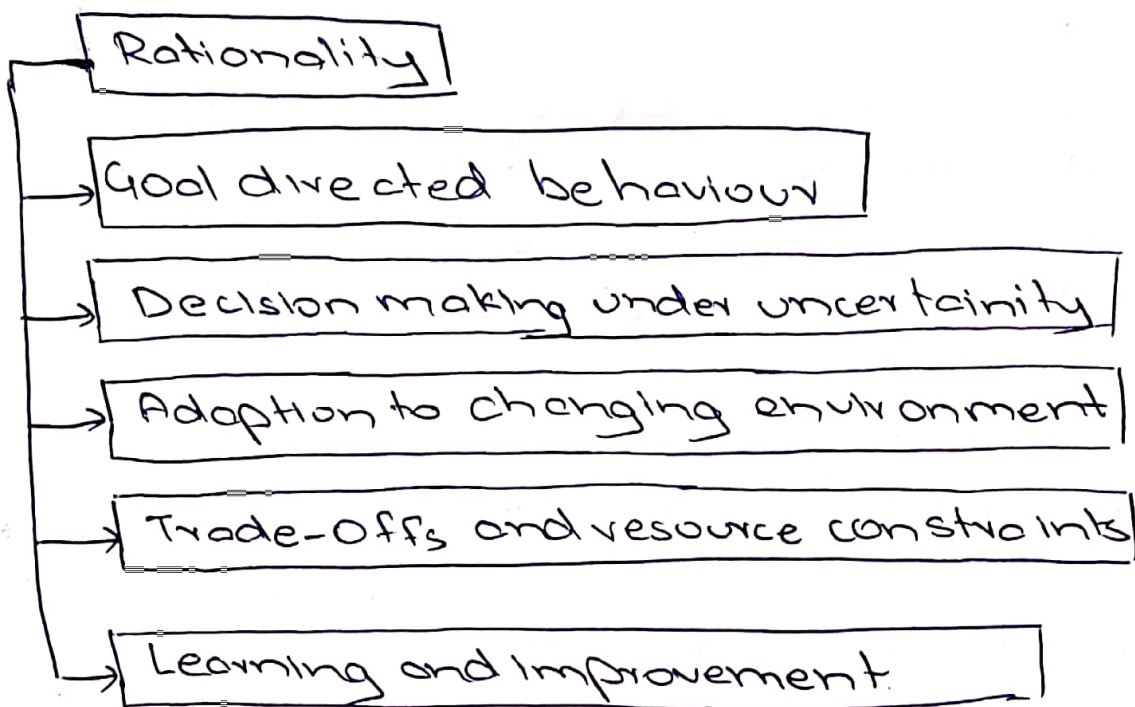 Rationality
Goal directed behaviour
Decision making under uncertainity
Adaption to changing environment
Trade-Offs and resource constraints
Learning and improvement